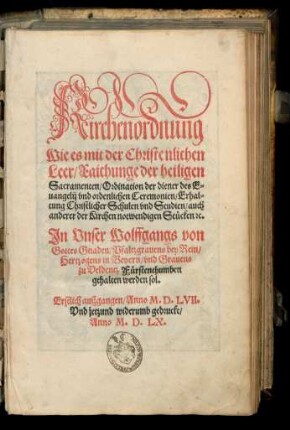 Kirchenordnung
Wie es mit der Christenlichen
Leer/Raichunge der heiligen
Sacramenten/Ordination der diener des E-
uangelij vnd ordenlichen Ceremonien/Erhal-
tung Christlicher Schulen vnd Studien/auch
anderer der Kirchen notwendigen Stücken ꝛc.
In Vnser Wolffgangs von
Gottes Gnaden/Pfaltzgrauens bey Rein/
Hertzogens in Beyern/vnd Grauens
zu Veldentz Fürstenthumben
gehalten werden sol.
Erstlich außgangen/Anno M. D. LVII.
Vnd jetzund widerumb gedruckt/
Anno M. D. LX.